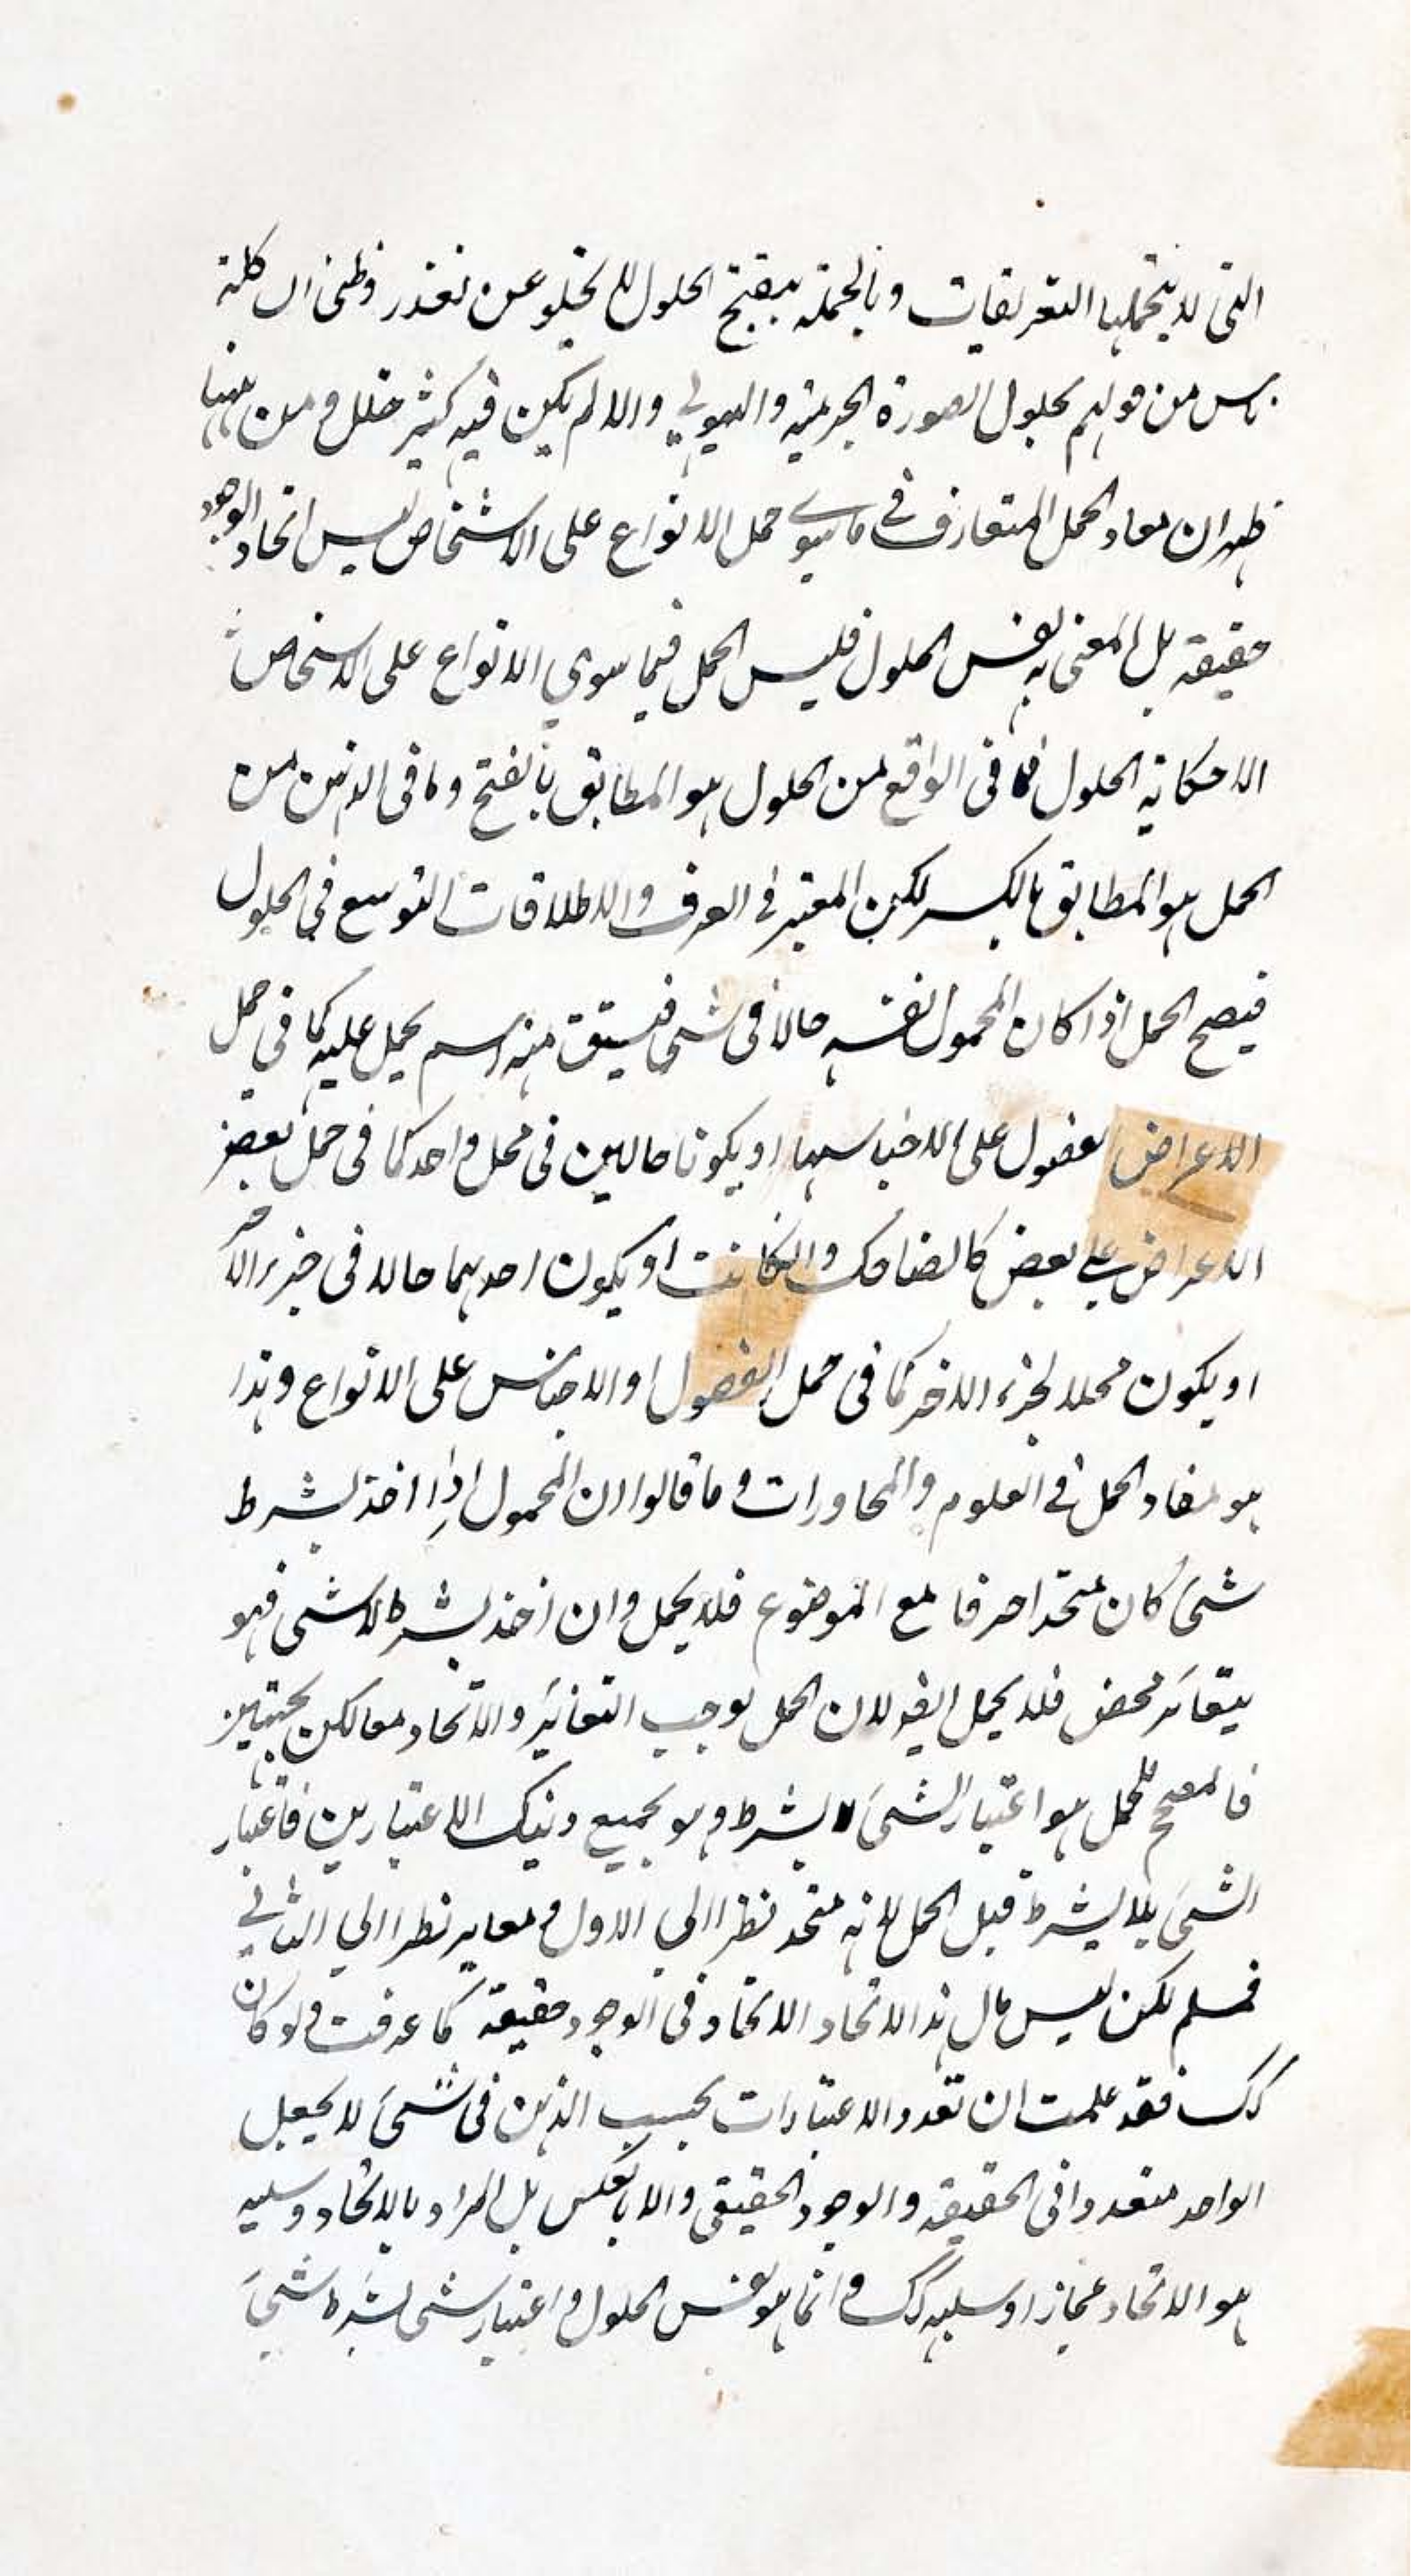 التى لا يتحملها التعريفات وبالجملة تنقيح الحلول لا يخلو عن تعذر وظنى ان كلمة
من قولهم بحلول الصورة الجرمية والهيولي والا لم يكن فيه كثير خلل ومن ههنا
ظهر ان مفاد الحمل المتعارف في ما سوى حمل الانواع على الاشخاص ليس اتحاد الوجود
حقيقة بل المعنى به نفس الحلول فليس الحمل فيما سوي الانواع على الاشخاص
الا حكاية الحلول فما فى الواقع من الحلول هو المطابق بالفتح وما فى الذهن من
الحمل هو المطابق بالكسر لكن المعتبر في العرف والاطلاقات التوسع في الحلول
فيصح الحمل اذا كان المحمول نفسه حالا فى شى فيشتق منه اسم يحمل عليه كما في حمل
الاعراض الفصول على اجناسها او يكونا حالين فى محل واحد كما فى حمل بعض
الاعراض على بعض كالضاحك والكاتب او يكون احدهما حالا فى جزء الآخر
او يكون محلا لجزء الاخر كما فى حمل الفصول او الاجناس على الانواع وهذا
هو مفاد الحمل في العلوم والمحاورات وما قالوا ان المحمول اذا اخذ بشرط
شئ كان متحدا صرفا مع الموضوع فلا يحمل وان اخذ بشرط لا شى فهو
متغائر محض فلا يحمل ايضا لان الحمل يوجب التغائر والاتحاد معا لكن بجهتين
فالمصحح للحمل هو اعتبار الشئ لا بشرط وهو يجمع ذينك الاعتبارين فاعتبار
الشئ بلا بشرط قبل الحمل لانه متحد نظرا الي الاول ومغاير نظرا الي الثاني
فمسلم لكن ليس مال هذا الاتحاد الاتحاد فى الوجود حقيقة كما عرفت ولو كان
كك فقد علمت ان تعدد الاعتبارات بحسب الذهن فى شئ لا يجعل
الواحد متعددا فى الحقيقة والوجود الحقيقى والا بالعكس بل المراد بالاتحاد وسلبه
هو الاتحاد مجازا وسلبه كك وانما هو نفس الحلول واعتبار شى بشرط شئ